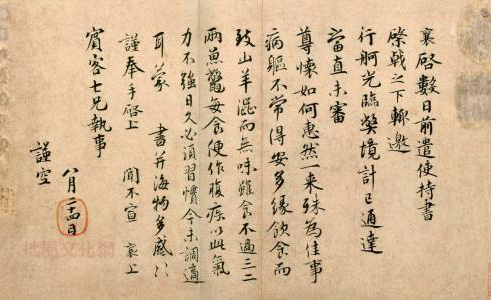 襄啟數日前遣使持書
棨戟之下輒邀
行舸光臨弊境計已通達
當直未審
尊懷如何惠然一來殊為佳事
病軀不常得安多緣飲食而
致山羊澀而無味雖食不過三二
兩魚鱉每食便作腹疾以此氣
力不強日久必須習慣今未調適
耳蒙 書并海物多感々
謹奉手啟上 聞不宣 襄上
賓客七兄執事
八月二十四日
謹空